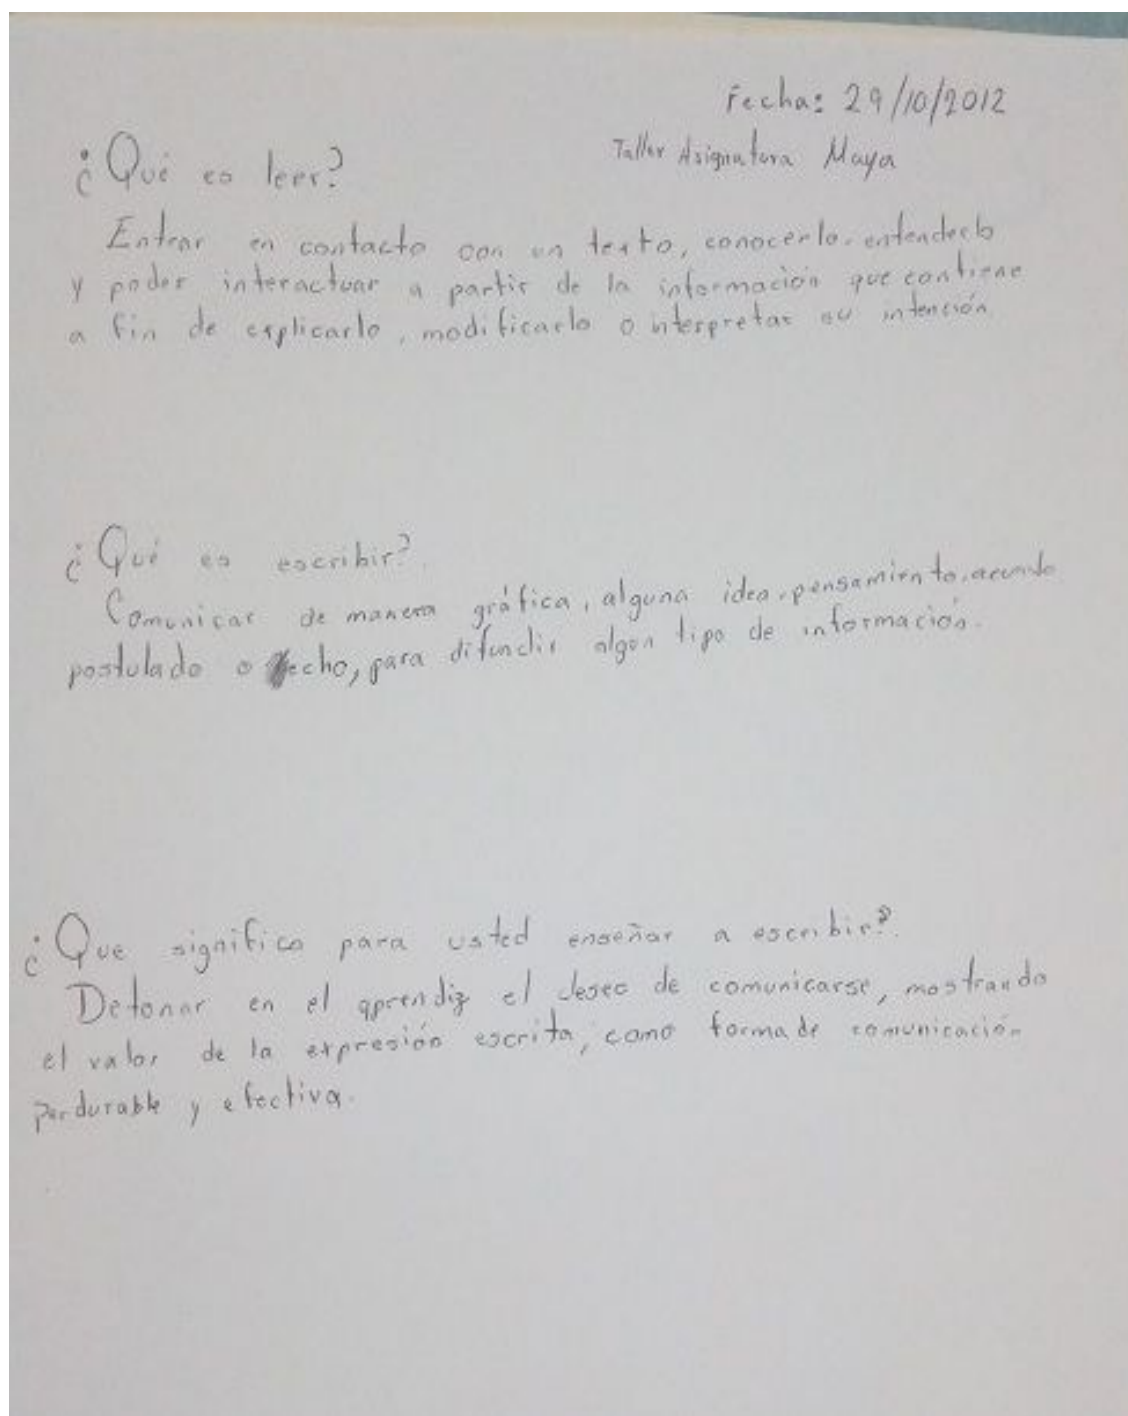 Fecha: 29/10/2012
Taller Asignatura Maya
¿Qué es leer?
Entrar en contacto con un texto, conocerlo, entenderlo
y poder interactuar a partir de la información que contiene
a fin de explicarlo, modificarlo o interpretar su intención.
¿Qué es escribir?
Comunicar de manera gráfica, alguna idea, pensamiento, acuerdo
postulado o hecho, para difundir algun tipo de información.
¿Que significa para usted enseñar a escribir?
Detonar en el aprendiz el deseo de comunicarse, mostrando
el valor de la expresión escrita, como forma de comunicación
perdurable y efectiva.